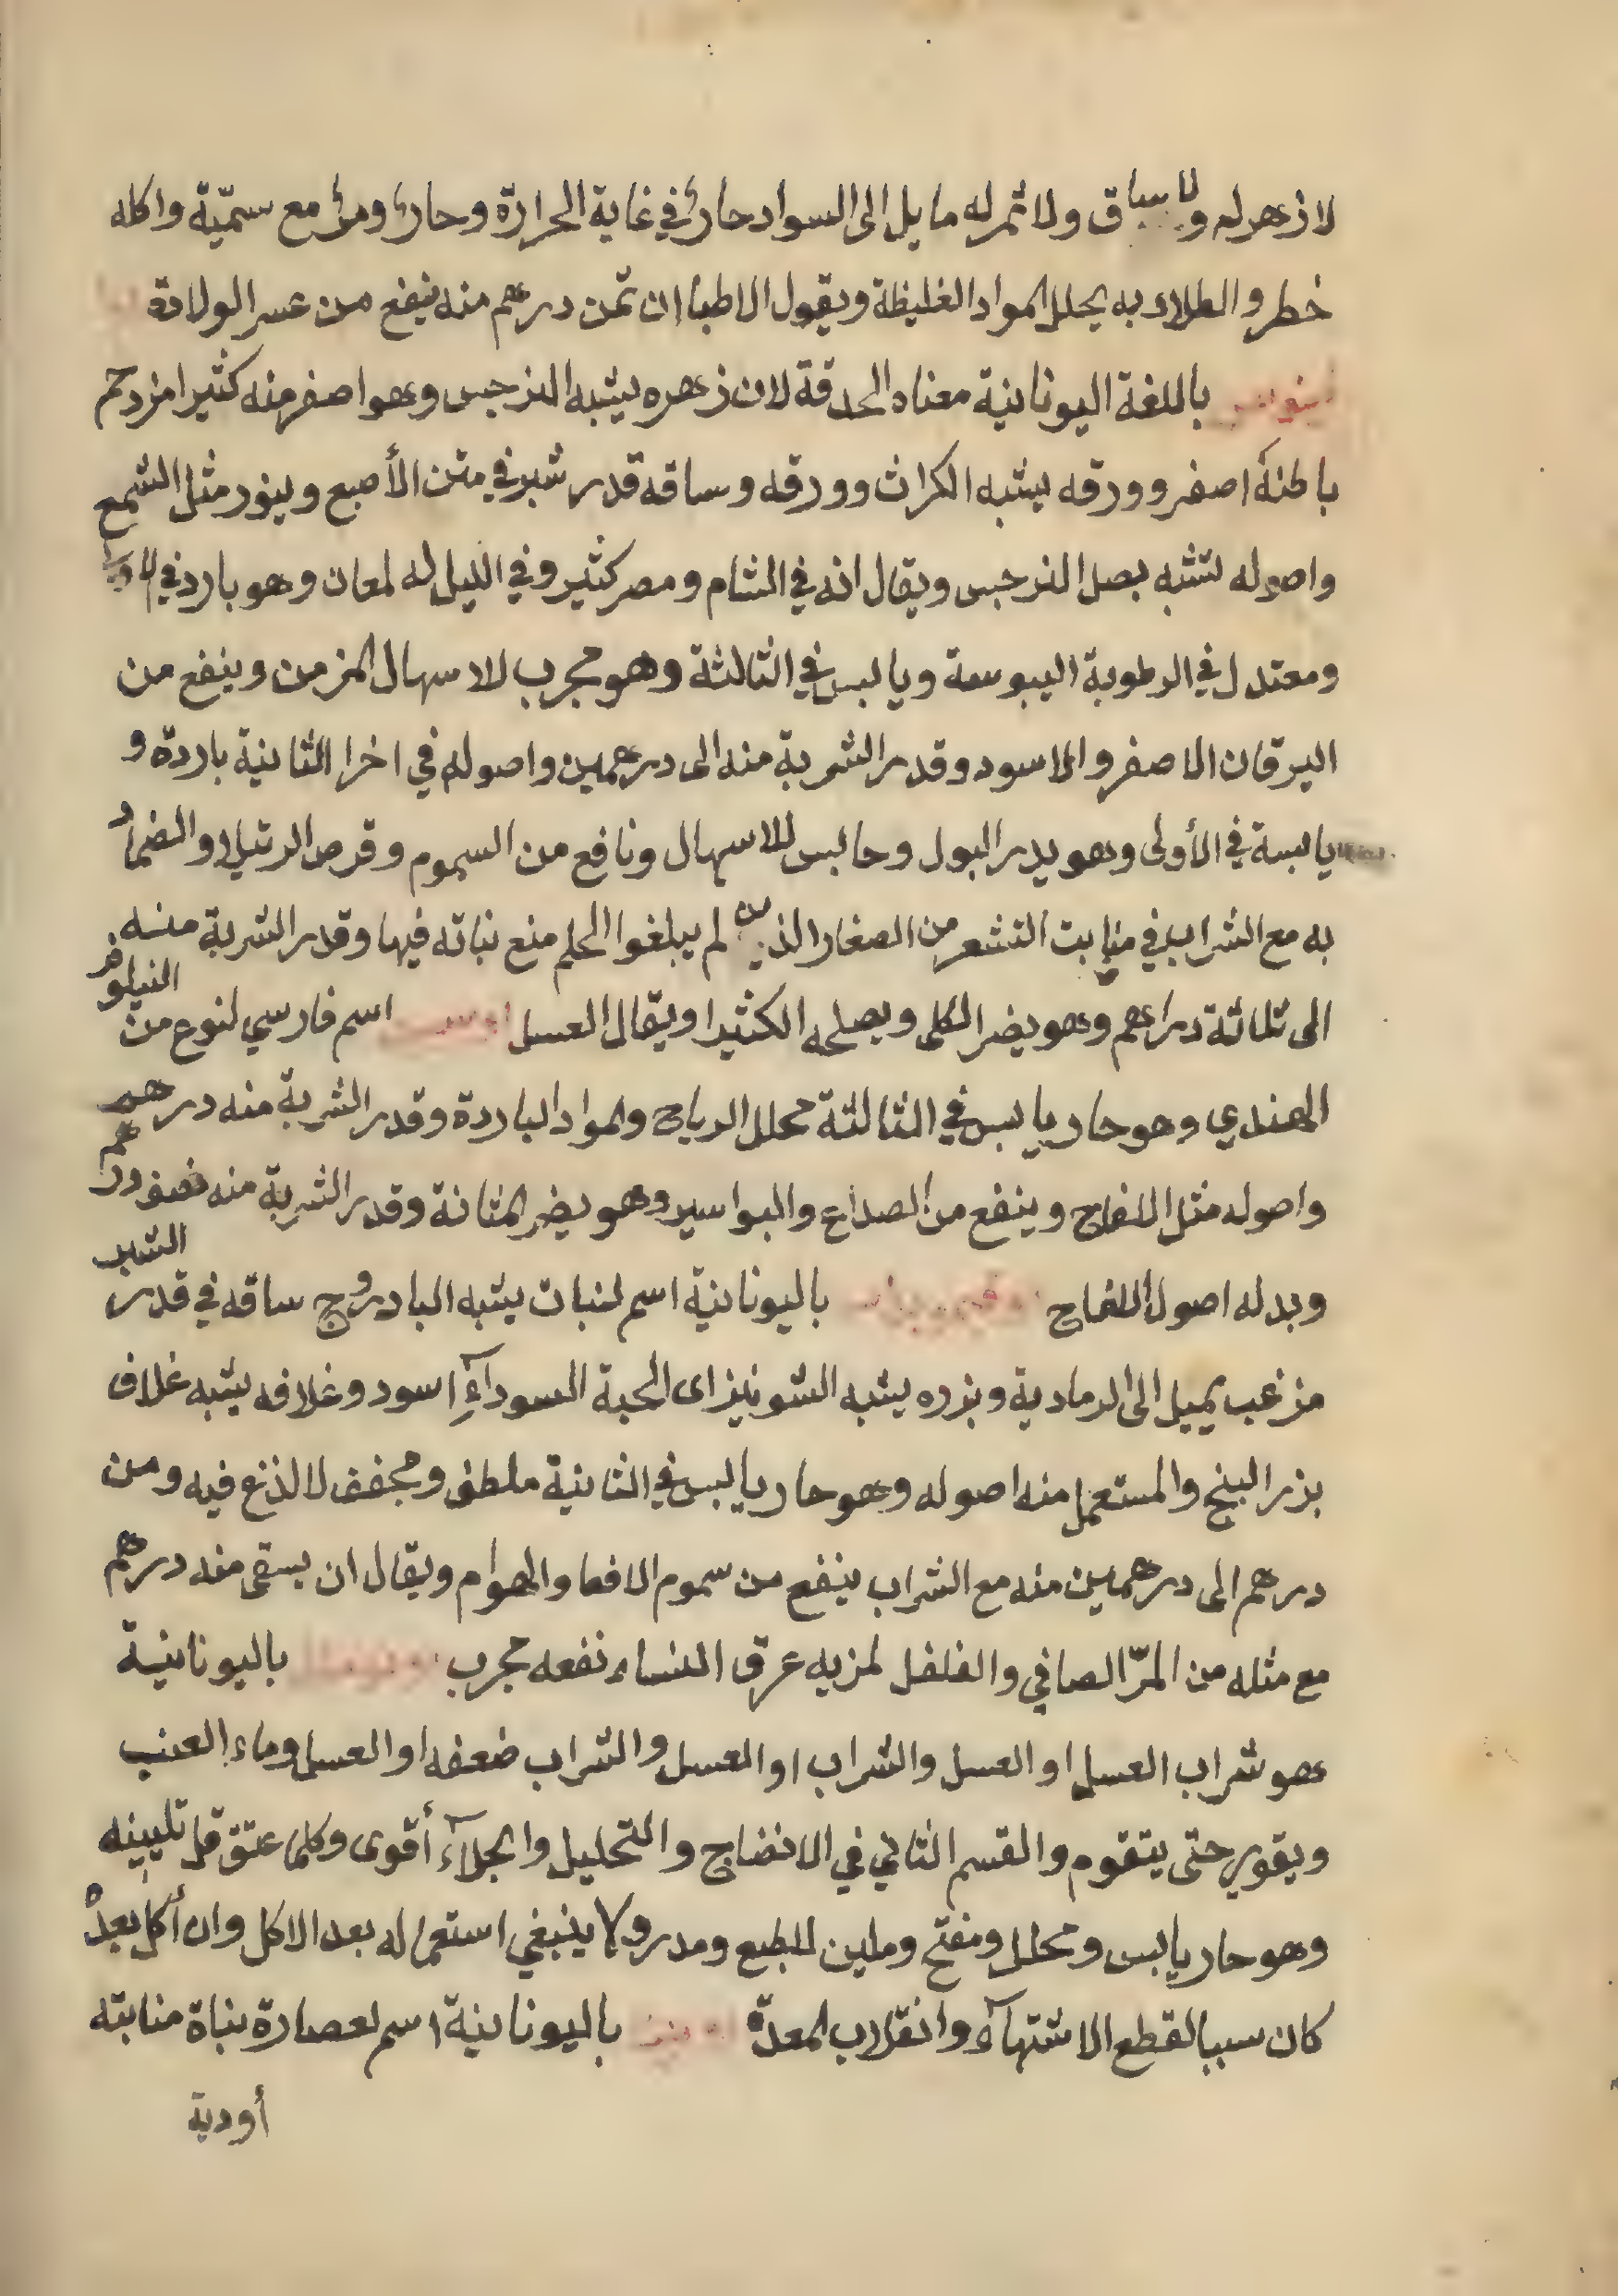 لا زهر له ولا ساق ولا ثمر له مايل الى السواد حار في غاية الحرارة وحار ومر مع سمّية واكله
خطر والطلاء به يحلل المواد الغليظة ويقول الاطبا ان ثمن درهم منه ينفع من عسر الولادة
باللغة اليونانية معناه الحدقة لان زهره يشبه النرجس وهو اصفر منه كثيرا مزدحم
باطنه اصفر وورقه يشبه الكراث وورقه وساقه قدر شبر في متن الأصبع وينور مثل الشمع
واصوله تشبه بصل النرجس ويقال انه في الشام ومصر كثير وفي الليل له لمعان وهو بارد في
ومعتدل في الرطوبة اليبوسة ويابس في الثالثة وهو مجرب لاسهال المزمن وينفع من
اليرقان الاصفر والاسود وقدر الشربة منه الى درهمين واصوله في اخرا الثانية باردة و
يابسة في الأولى وهو يدر البول وحابس للاسهال ونافع من السموم وقرص الرتيلا والضماد
به مع الشراب في منابت الشعر من الصغار الذين لم يبلغوا الحلم منع نباته فيها وقدر الشربة منه
الى ثلاثة دراهم وهو يضر الكلى ويصلحه الكثيرا ويقال العسل اسم فارسي لنوع من النيلوفر
الهندي وهو حار يابس في الثالثة محلل الرياح والمواد الباردة وقدر الشربة منه درهم
واصوله مثل اللفاح وينفع من الصداع والبواسير وهو يضر المثانة وقدر الشربة منه نصف درهم
وبدله اصول اللفاح باليونانية اسم لنبات يشبه البادروج ساقه في قدر الشبر
مزغب يميل الى الرمادية وبزره يشبه الشونيز اى الحبة السودآءِ اسود وغلافه يشبه غلاف
بزر البنج والمستعمل منه اصوله وهو حار يابس في الثانية ملطف ومجفف لا لذع فيه ومن
درهم الى درهمين منه مع الشراب ينفع من سموم الافعا والهوام ويقال ان يسقى منه درهم
مع مثله من المرّ الصافي والفلفل لمن به عرق النساء نفعه مجرب باليونانية
هو شراب العسل او العسل والشراب او العسل والشراب ضعفه او العسل وماء العنب
ويقوي حتى يتقوم والقسم الثاني في الانضاج والتحليل والجلآء أقوى وكلما عتق قل تليينه
وهو حار يابس ومحلل ومفتح وملين للطبع ومدر ولا ينبغي استعماله بعد الاكل وان أكل بعده
كان سببا لقطع الاشتهآء وانقلاب المعدة باليونانية اسم لعصارة بناة منابته
أودية